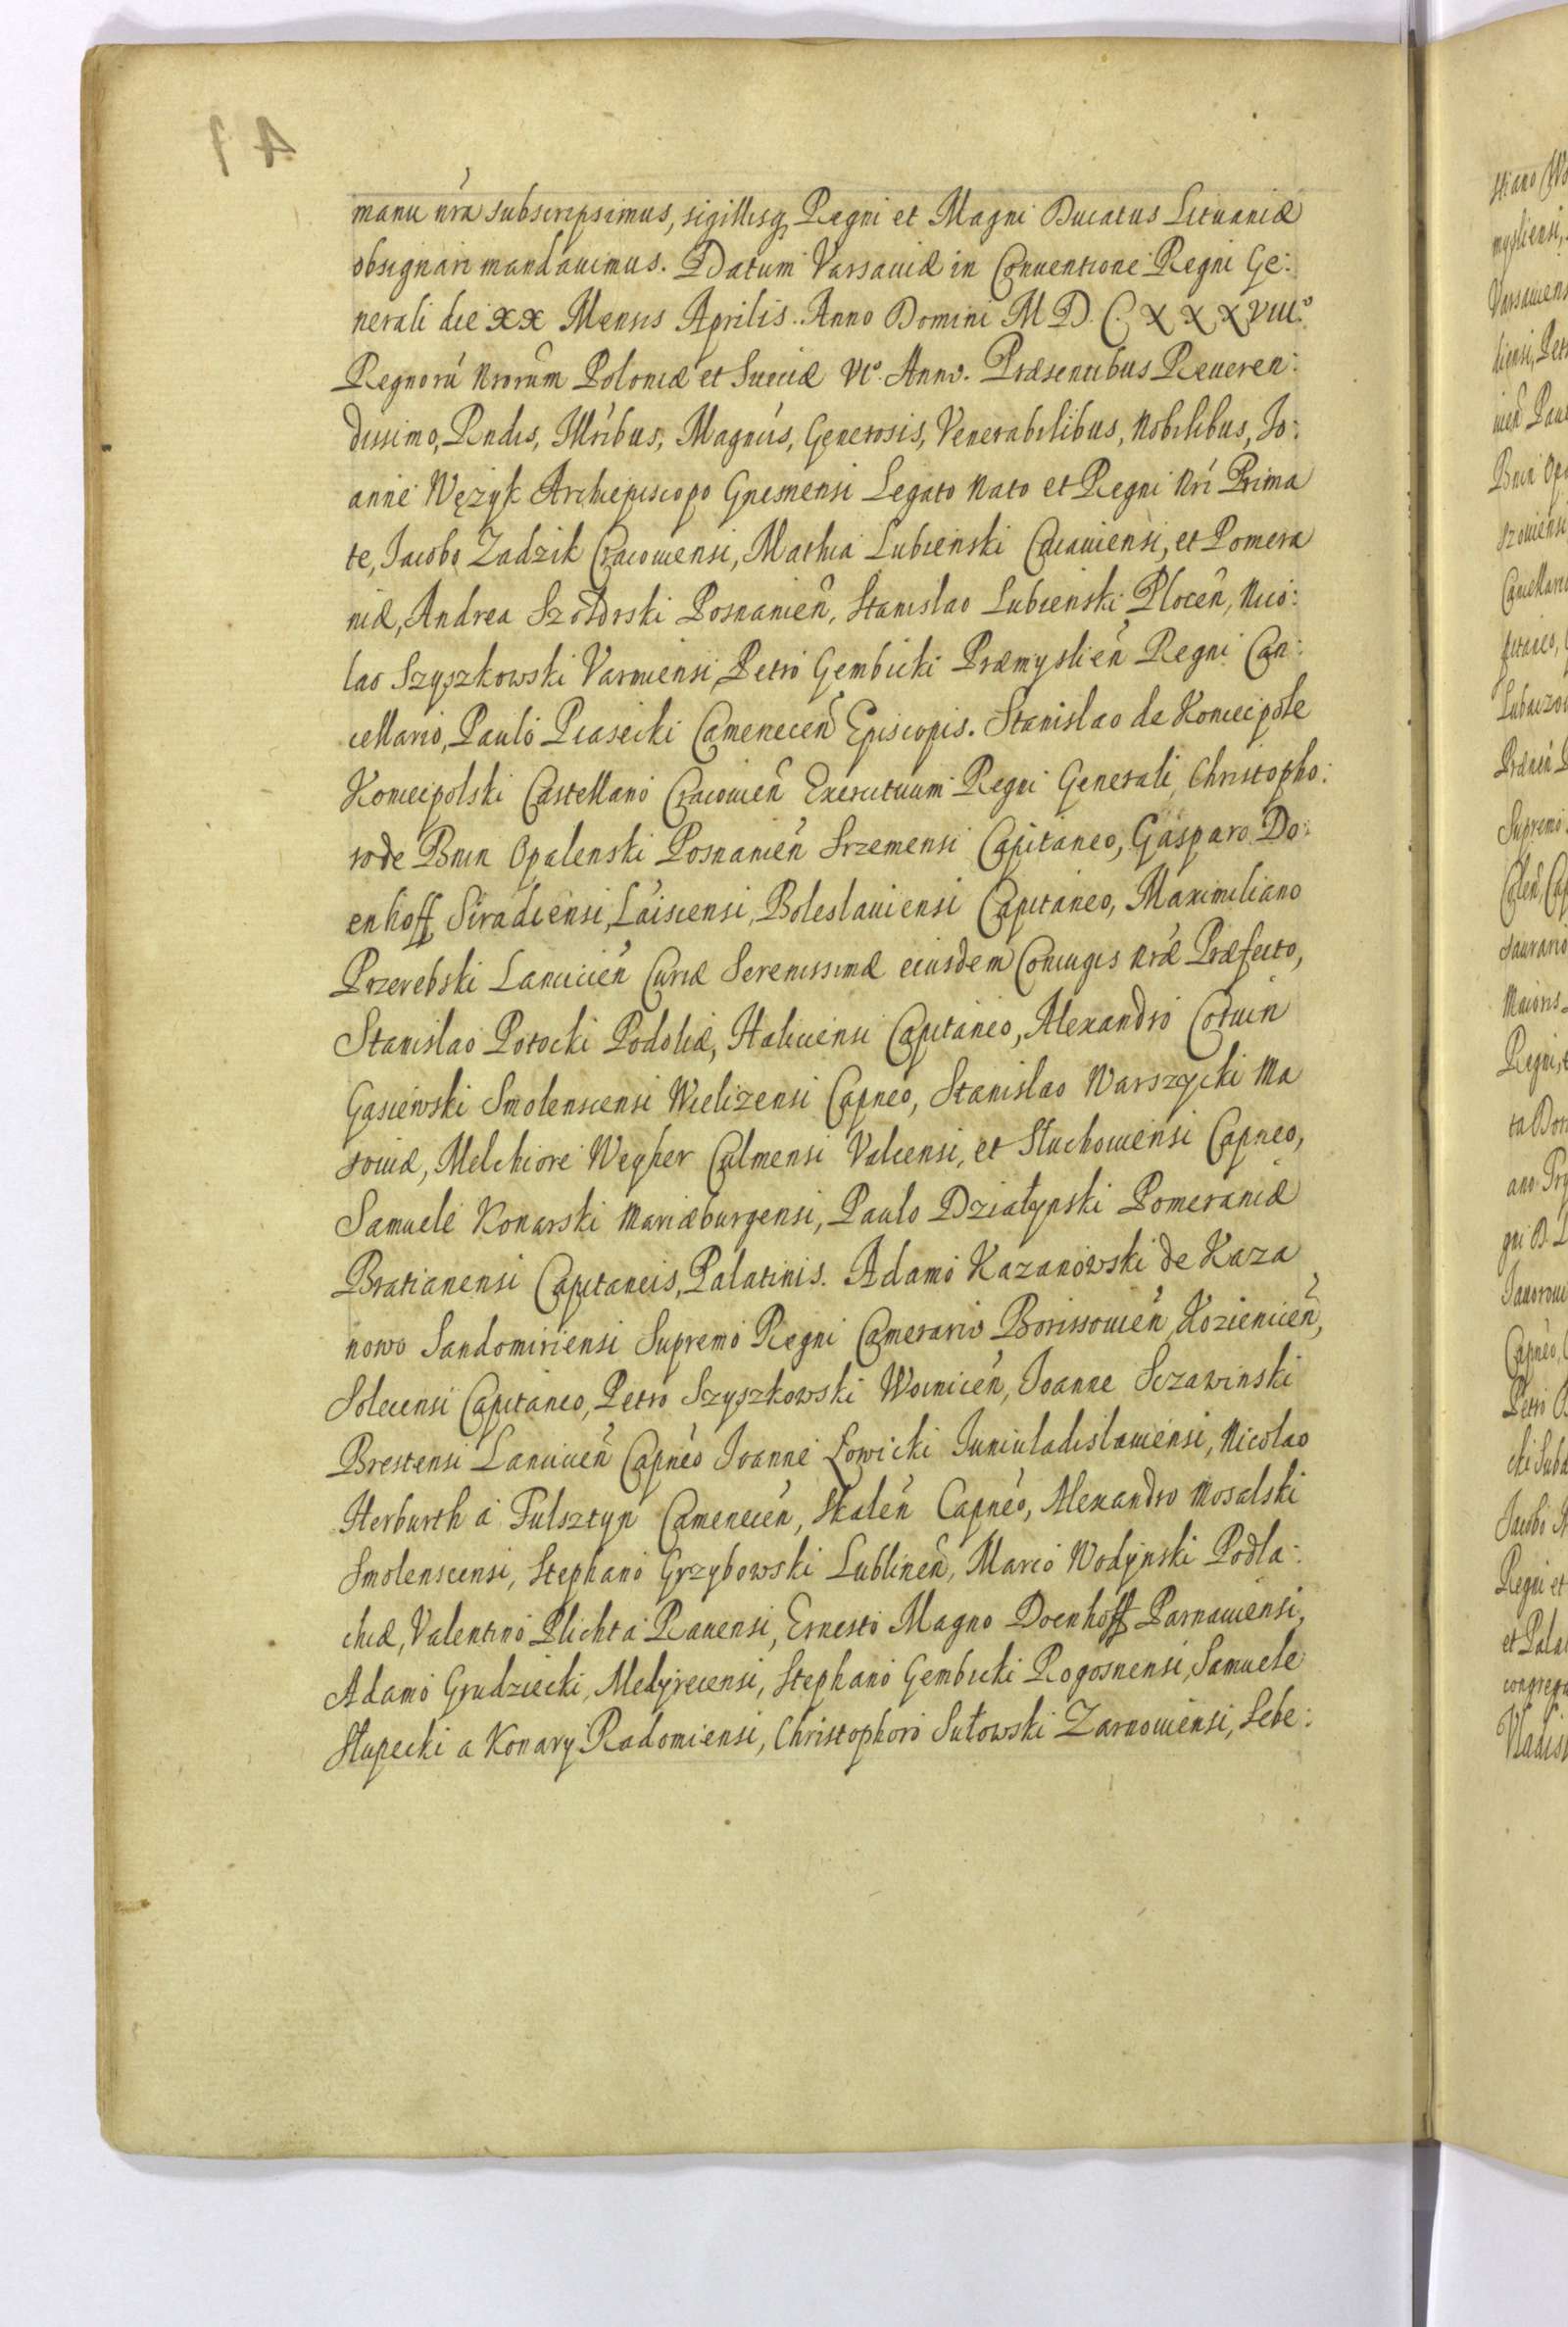 manu nrâ subscripsimus, sigillisq Regni et Magni Ducatus Lituaniæ
obsignari mandauimus. Datum Varsauiæ in Conuentione Regni Ge:
nerali die XX Mensis Aprilis. Anno Domini M D. C. X X X VIII.º
Regnorú Nrorum Poloniæ et Sueciæ VIº. Anno. Præsentibus Reueren:
dissimo, Rndis, Illribus, Magnús, Generosis, Venerabilibus, Nobilibus, Jo:
anne Wężyk Archiepiscopo Gnesnensi Legato Nato et Regni Nri Prima
te, Jacobo Zadzik Cracouiensi, Mathia Lubienski Cuiauiensi, et Pomera
niæ, Andrea Szołdrski Posnanień, Stanislao Lubienski Ploceń, Nico:
lao Szyszkowski Varmiensi, Petro Gembicki Præmyslień Regni Can:
cellario, Paulo Piasecki Cameneceń Episcopis. Stanislao de Koniecpole
Koniecpolski Castellano Cracouień Exercituum Regni Generali, Christopho:
ro de Bnin Opalenski Posnanień Srzemensi Capitaneo, Gasparo Do:
enhoff Siradiensi, Laiscensi, Boleslauiensi Capitaneo, Maximiliano
Przerebski Lancicień Curiæ Serenissimæ eiusdem Coniugis Nræ Præfecto,
Stanislao Potocki Podoliæ, Haliciensi Capitaneo, Alexandro Coruin
Gasiewski Smolenscensi Wielizensi Capneo, Stanislao Warszycki Ma
souiæ, Melchiore Weyher Culmensi Valcensi, et Sluchouiensi Capneo,
Samuele Konarski Mariæburgensi, Paulo Działynski Pomeraniæ
Bratianensi Capitaneis, Palatinis. Adamo Kazanowski de Kaza
nowo Sandomiriensi Supremo Regni Camerario Borissouień, Kozieniceń,
Solecensi Capitaneo, Petro Szyszkowski Woiniceń, Joanne Sczawinski
Brestensi Lancicień Capneo Joanne Łowicki Juniuladislauiensi, Nicolao
Herburth a Fulsztyn Cameneceń, Skaleń Capneo, Alexandro Mosalski
Smolenscensi, Stephano Grzybowski Lublineń, Marco Wodynski Podla:
chiæ, Valentino Plichta Rauensi, Ernesto Magno Doenhoff Parnauiensi,
Adamo Grudziecki, Medyrecensi, Stephano Gembicki Rogosnensi, Samuele
Słupecki a Konary Radomiensi, Christophoro Sułowski Zarnouiensi, Sebe: